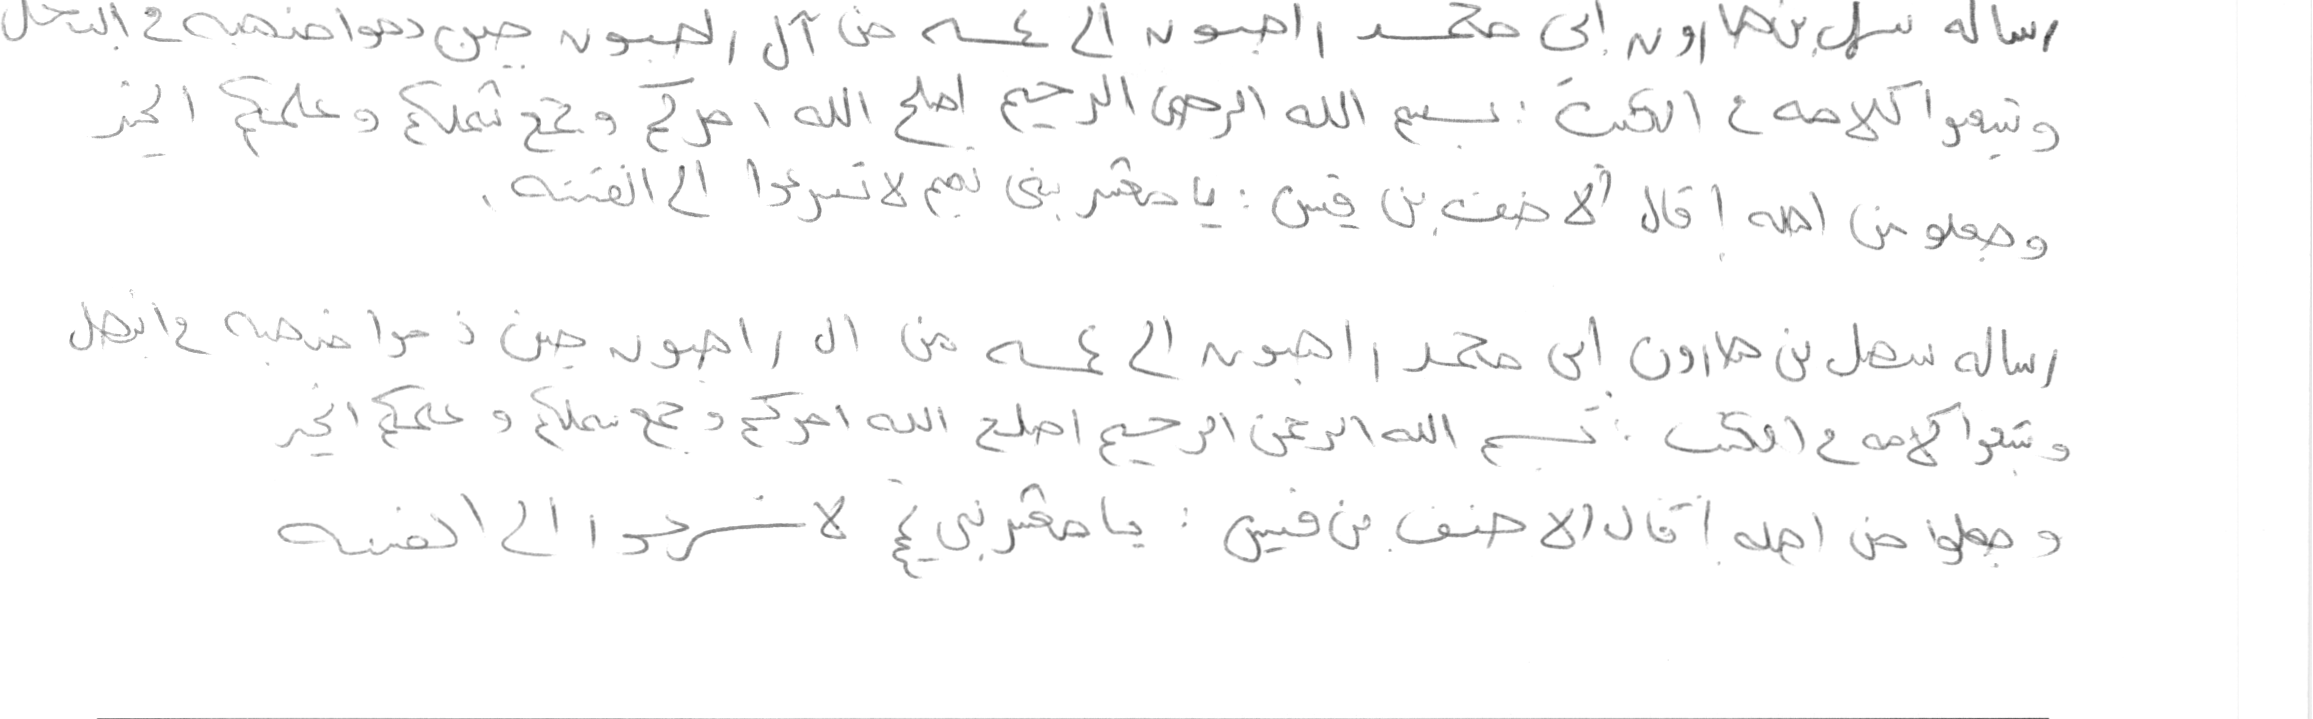 رساله سهل بن هارون إلى محمد راهبون الى عمه من آل راهبون حين ذموا مذهبه في البخل
وتتبعوا كلامه في الكتب : بسم الله الرحمن الرحيم اصلح الله امركم وجمع شملكم وعلمكم الخير
وجعلو من اهله ! قال الاحنف بن قيس : يا معشر بني تميم لا تسرعوا الى الفتنه .
رساله سهل بن هارون أبى محمد راهبون الى عمه من ال راهبون حين ذموا مذهبه في البخل
وتتبعوا كلامه في الكتب : بسم الله الرحمن الرحيم اصلح الله امركم وجمع شملكم وعلمكم الخير
وجعلوا من اهله ! قال الاحنف بن قيس : يا معشر بني تميم لا تسرعوا الى الفتنه